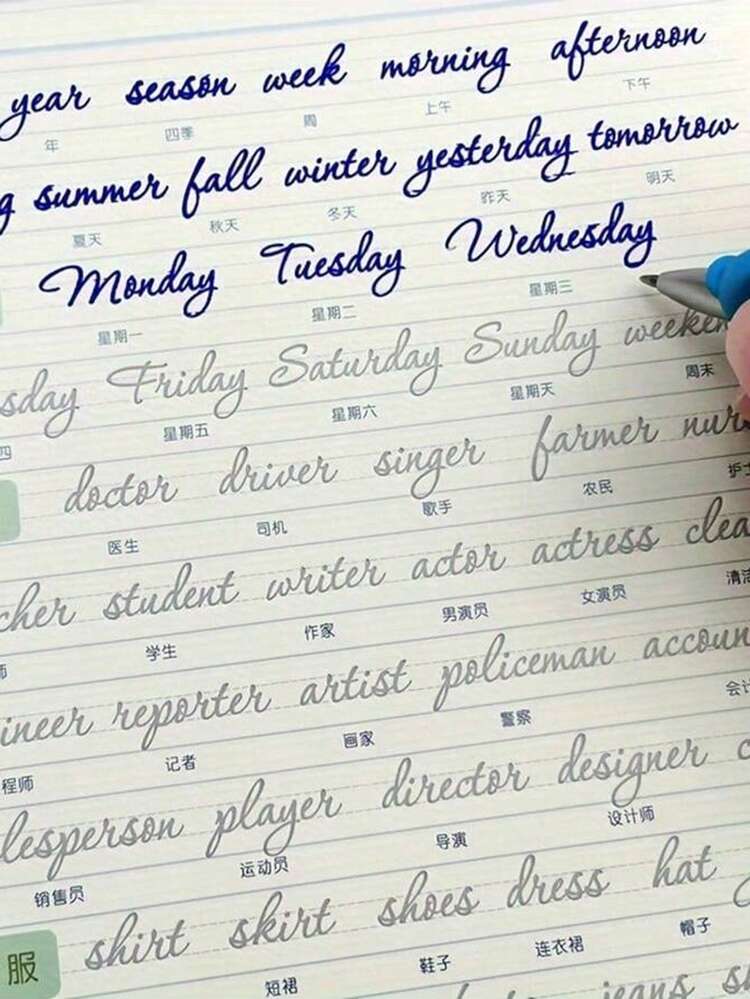 year season week morning afternoon
年 四季 周 上午 下午
summer fall winter yesterday tomorrow
夏天 秋天 冬天 昨天 明天
Monday Tuesday Wednesday
星期一 星期二 星期三
sday Friday Saturday Sunday weeken
四 星期五 星期六 星期天 周末
doctor driver singer farmer nur
医生 司机 歌手 农民 护士
cher student writer actor actress clea
师 学生 作家 男演员 女演员 清洁
ineer reporter artist policeman accoun
程师 记者 画家 警察 会计
lesperson player director designer
销售员 运动员 导演 设计师
shirt skirt shoes dress hat
服 短裙 鞋子 连衣裙 帽子
jeans